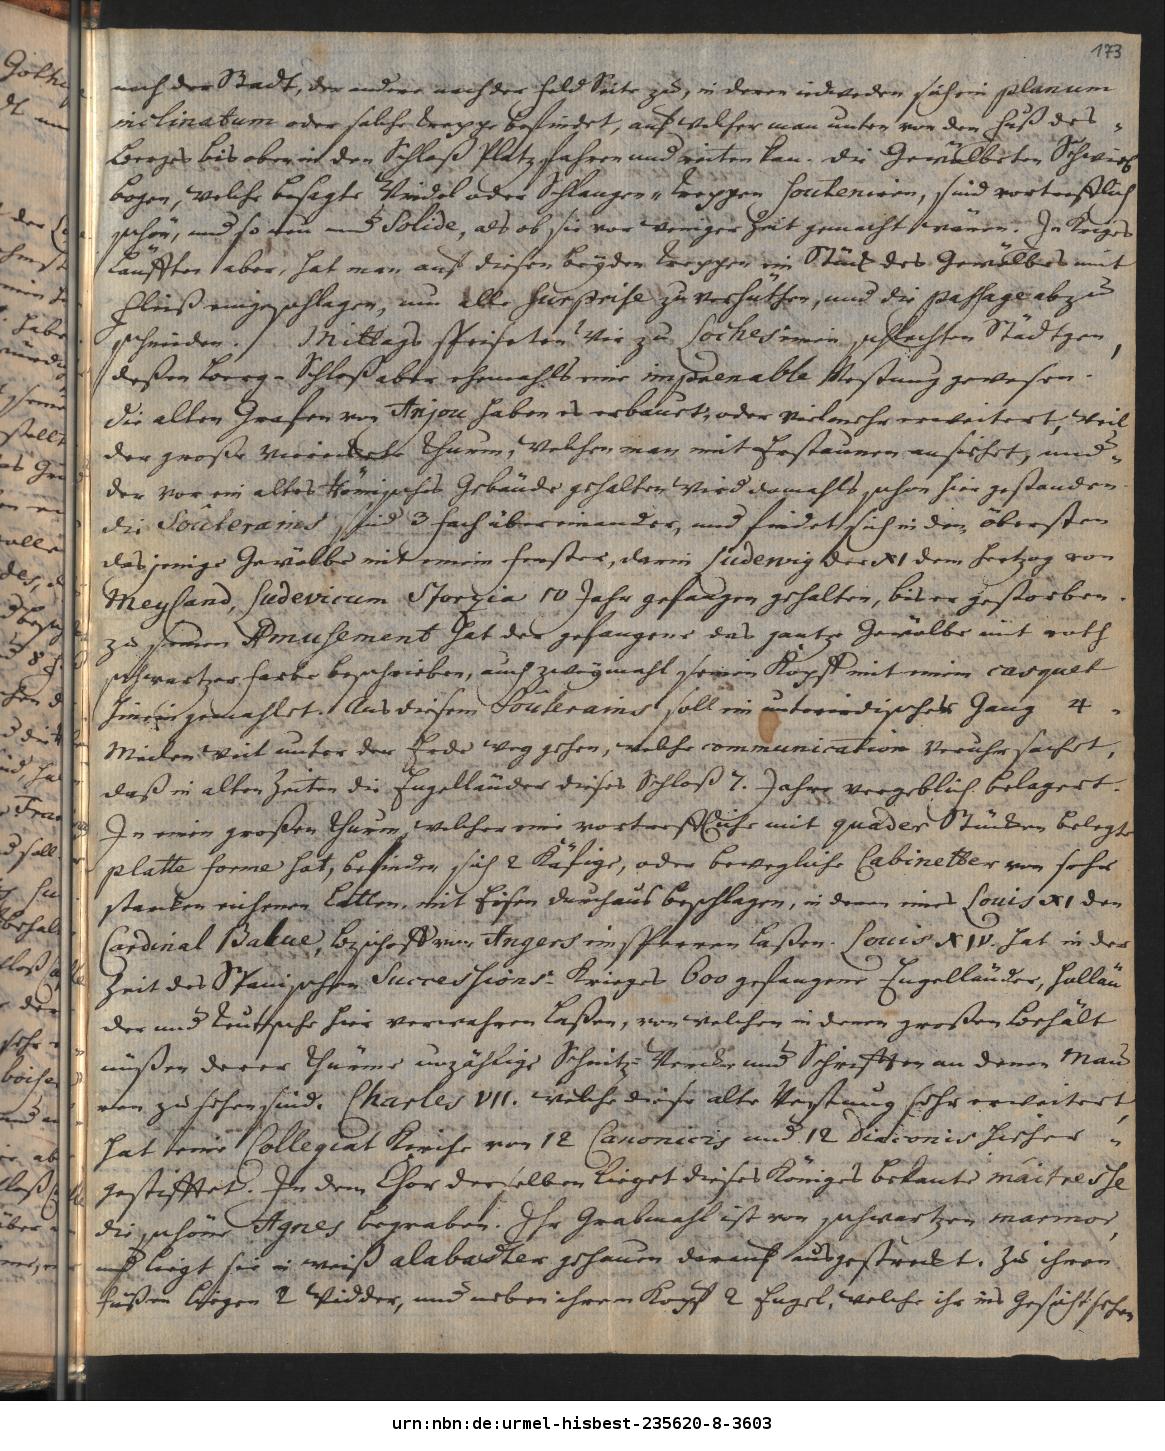 173
nach der Stadt, der andere nach der Feld Seite zu, in deren iedweden sich ein planum
inclinatum oder solche Treppe befindet, auf welcher man unten von den Fuß des
Berges bis oben in den Schloß Platz fahren und reiten kan. Die Gewölbeten Schwieb
bogen, welche besagte Windel oder Schlangen Treppen souteniren, sind vortrefflich
schön, und so neu und Solide, als ob sie vor weniger Zeit gemacht wären. In Krieges
Läufften aber, hat man auf diesen beyden Treppen ein Stück des Gewölbes mit
Fleiß eingeschlagen, um alle surprise zu verhüthen, und die passage abzu
schneiden. / Mittags speiseten wir zu Loches einen schlechten Städtgen,
deßen Berg-Schloß aber ehemahls eine imprenable Vestung gewesen.
Die alten Grafen von Anjou haben es erbauet, oder vielmehr erweitert, weil
der große viereckete Thurm, welchen man mit Erstaunen ansiehet, und
der vor ein altes Römisches Gebäude gehalten wird damahls schon hier gestanden.
Die Souterains sind 3 fach übereinander, und findet sich in den öbersten
dasjenige Gewölbe mit einem Fenster, darin Ludewig der XI dem Hertzog von
Meyland, Ludevicum Sforzia 10 Jahr gefangen gehalten, bis er gestorben.
Zu seinen Amusement hat der gefangene das gantze Gewölbe mit roth
schwartzer Farbe beschrieben, auch zweymahl seinen Kopff mit einen casquet
hinein gemahlet. Aus diesem Souterains soll ein unterirdisches Gang 4
Meilen weit unter der Erde weg gehen, welche communication veruhrsachet,
daß in alten Zeiten die Engelländer dieses Schloß 7. Jahre vergeblich belagert.
In einen großen Thurm, welcher eine vortreffliche mit quader Stücken belegte
platte forme hat, befinden sich 2 Käfige, oder bewegliche Cabinetter von sehr
starcken eichenen Latten, mit Eisen durchaus beschlagen, in deren eines Louis XI den
Cardinal Balue, Bischoff von Angers einsperren laßen. Louis XIV. hat in der
Zeit des Spanischen Successions-Krieges 600 gefangene Engelländer, Hollän
der und Teutsche hier verwahren laßen, von welchen in denen großen Behält
nüßen derer Thürme unzählige Schnitz-Wercke und Schrifften an denen Mau
ren zu sehen sind. Charles VII. welche diese alte Vestung sehr erweitert,
hat eine Collegiat Kirche von 12 Canonicis und 12 Diaconis hieher
gestifftet. In dem Chor derselben lieget dieses Königes bekante maitresse
die schöne Agnes begraben. Ihr Grabmahl ist von schwartzen marmor,
und liegt sie in weiß alabaster gehauen darauf ausgestreckt. Zu ihren
Füßen liegen 2 Widder, und neben ihrem Kopf 2 Engel, welche ihr ins Gesicht sehen
urn:nbn:de:urmel-hisbest-235620-8-3603